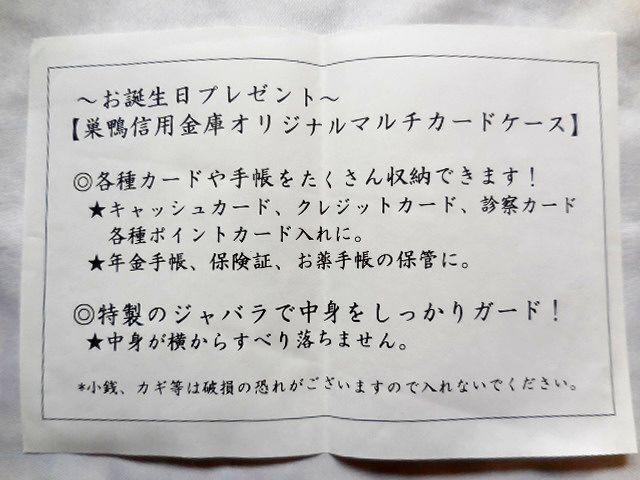 ～お誕生日プレゼント～
【巣鴨信用金庫オリジナルマルチカードケース】
◎各種カードや手帳をたくさん収納できます！
★キャッシュカード、クレジットカード、診察カード
各種ポイントカード入れに。
★年金手帳、保険証、お薬手帳の保管に。
◎特製のジャバラで中身をしっかりガード！
★中身が横からすべり落ちません。
*小銭、カギ等は破損の恐れがございますので入れないでください。